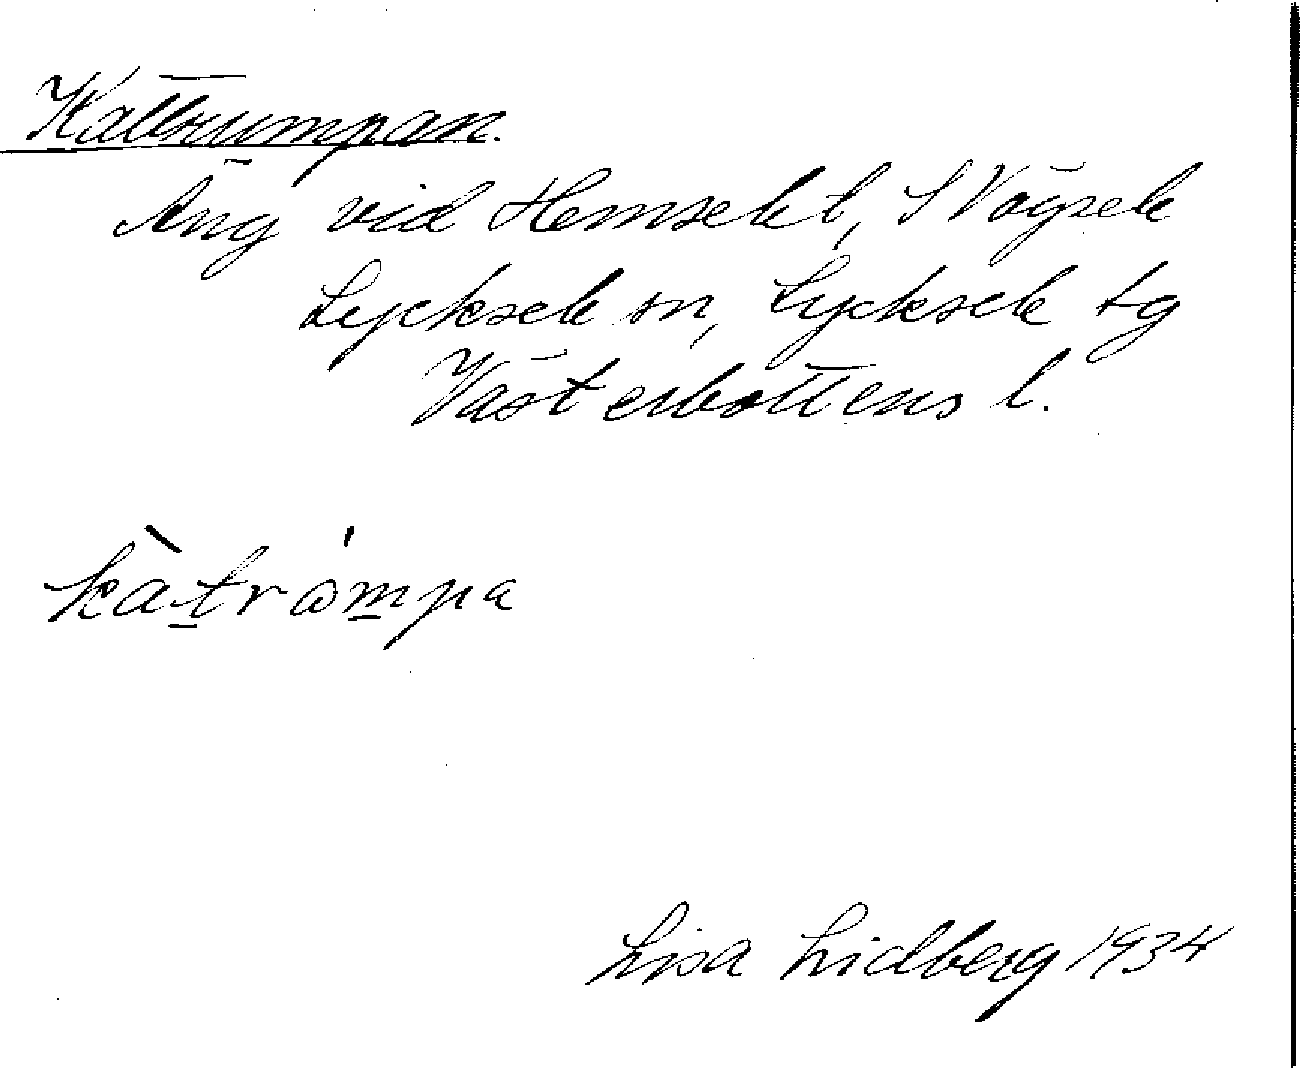 Kattrumpan.
Äng vid Hemsekl, S Vägsele
Lycksele sn, Lycksele tg
Västerbottens l.
kàtrǿmpa
Lisa Lidberg 1934